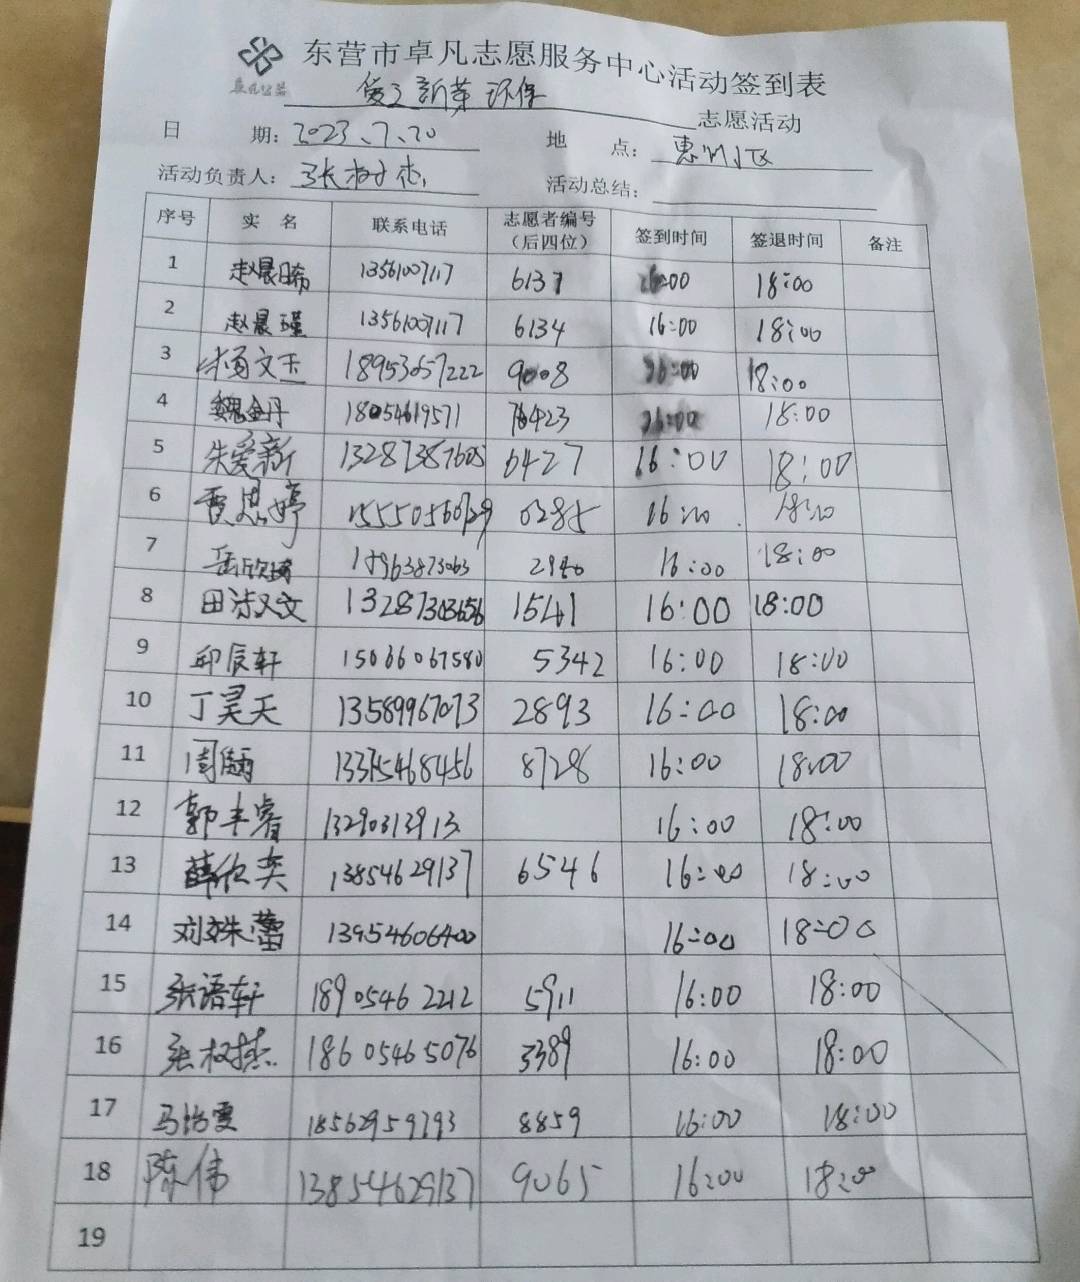 东营市卓凡志愿服务中心活动签到表
卓凡公益
新芽 环保 志愿活动
日 期: 2023、7、20 地 点: 惠州小区
活动负责人: 张树杰 活动总结:
序号 实 名 联系电话 志愿者编号（后四位） 签到时间 签退时间 备注
1 赵晨晞 13561007117 6137 16:00 18:00
2 赵晨瑾 13561007117 6134 16:00 18:00
3 杨文玉 18953057222 9008 16:00 18:00
4 魏金丹 18054619571 16:00 18:00
5 朱爱新 13287387605 6427 16:00 18:00
6 贾思婷 0285 16:00 18:00
7 岳欣 2980 16:00 18:00
8 田淑文 13287303656 1541 16:00 18:00
9 邱辰轩 15066067580 5342 16:00 18:00
10 丁昊天 13589967073 2893 16:00 18:00
11 周 13375468456 8728 16:00 18:00
12 郭丰睿 13290313913 16:00 18:00
13 薛欣奕 13854629137 6546 16:00 18:00
14 刘姝蕾 13954606400 16:00 18:00
15 张语轩 18905462212 5911 16:00 18:00
16 张树杰 18605465076 3389 16:00 18:00
17 马怡雯 18562959793 8859 16:00 18:00
18 陈伟 13854629137 9065 16:00 18:00
19